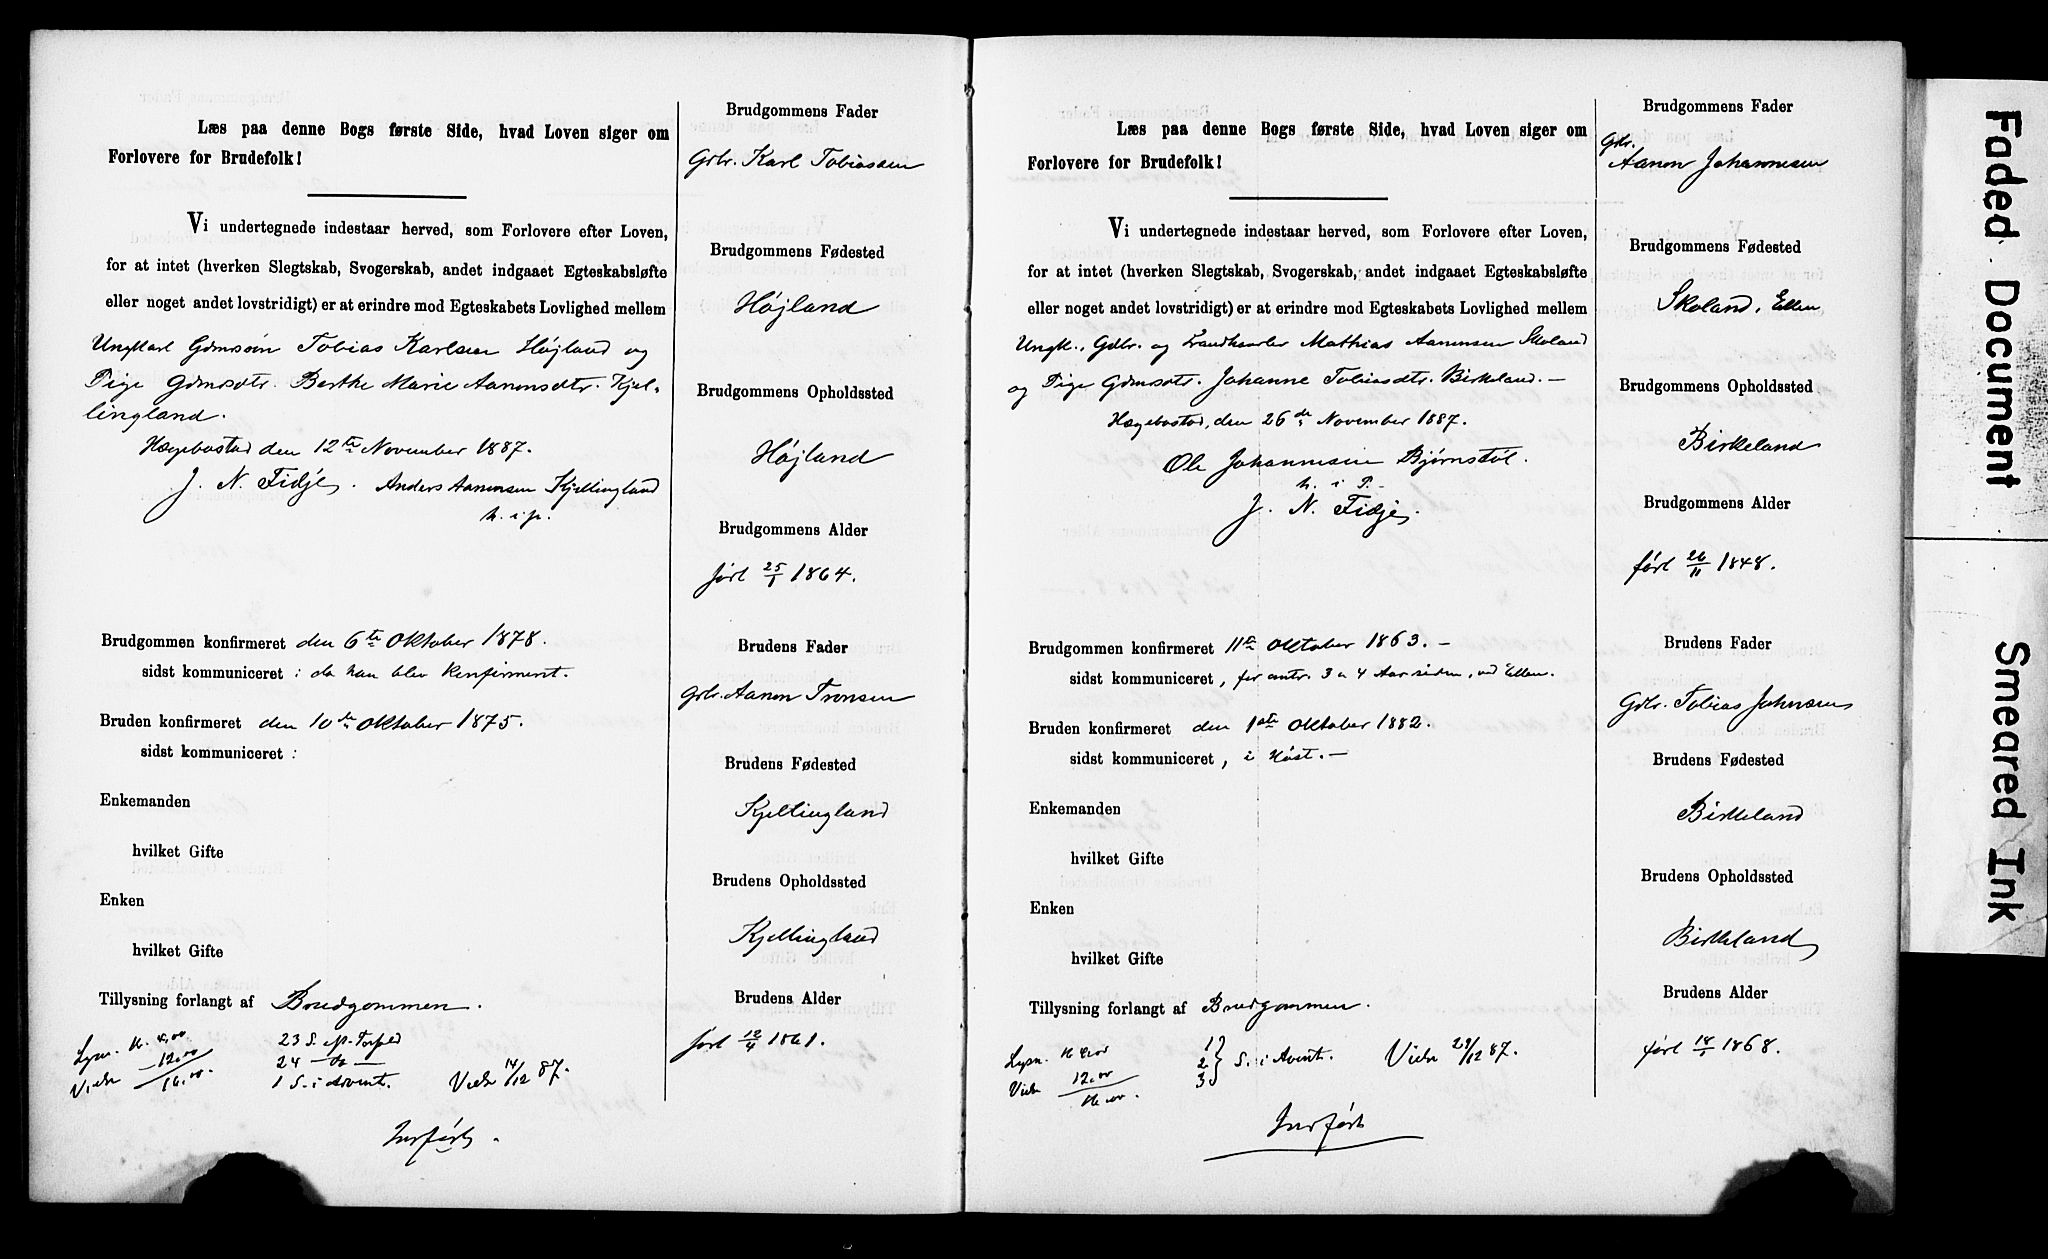 Læs paa denne Bogs første Side, hvad Loven siger om
Forlovere for Brudefolk!
Vi undertegnede indestaar herved, som Forlovere efter Loven,
for at intet (hverken Slegtskab, Svogerskab, andet indgaaet Egteskabsløfte
eller noget andet lovstridigt) er at erindre mod Egteskabets Lovlighed mellem
Ungkarl Gdmssøn Tobias Karlsen Højland og
Pige Gdmsdtr. Berthe Marie Aanensdtr. Kjel-
lingland.
Hægebostad den 12te November 1887.
J. N. Fidje. Anders Aanensen Kjellingland
h. i p.
Brudgommen konfirmeret den 6te Oktober 1878.
sidst kommuniceret : da han blev konfirmert.
Bruden konfirmeret den 10de Oktober 1875.
sidst kommuniceret :
Enkemanden
hvilket Gifte
Enken
hvilket Gifte
Tillysning forlangt af Brudgommen.
Lysn. K. 4,00 23 S. ep. Trefd
12,00 24 — do —
Vielse 16,00 1 S. i Advent. Viede 14/12 87.
Indført.
Brudgommens Fader
Gbr. Karl Tobiassen
Brudgommens Fødested
Højland
Brudgommens Opholdssted
Højland
Brudgommens Alder
født 25/1 1864.
Brudens Fader
Gbr. Aanon Tronsen
Brudens Fødested
Kjellingland
Brudens Opholdssted
Kjellingland
Brudens Alder
født 12/4 1861.
Læs paa denne Bogs første Side, hvad Loven siger om
Forlovere for Brudefolk!
Vi undertegnede indestaar herved, som Forlovere efter Loven,
for at intet (hverken Slegtskab, Svogerskab, andet indgaaet Egteskabsløfte
eller noget andet lovstridigt) er at erindre mod Egteskabets Lovlighed mellem
Ungk., Gdbr. og Landhandler Mathias Aanensen Skoland
og Pige Gdmsdtr. Johanne Tobiasdtr. Birkeland.—
Hægebostad, den 26de November 1887.
Ole Johannesen Bjørnstøl.
h. i P.
J. N. Fidje.
Brudgommen konfirmeret 11te Oktober 1863.—
sidst kommuniceret, for omtr. 3 a 4 Aar siden, ved Eiken.
Bruden konfirmeret den 1ste Oktober 1882.
sidst kommuniceret, i Høst.—
Enkemanden
hvilket Gifte
Enken
hvilket Gifte
Tillysning forlangt af Brudgommen.
Lysn. K 4,00 1 2 3 } S. i Advent. Viede 29/12 87.
Vielse 12,00
16,00.
Indført
Brudgommens Fader
Gbr. Aanon Johannesen
Brudgommens Fødested
Skoland, Eiken
Brudgommens Opholdssted
Birkeland
Brudgommens Alder
født 26/11 1848.
Brudens Fader
Gdbr. Tobias Johnsen
Brudens Fødested
Birkeland
Brudens Opholdssted
Birkeland
Brudens Alder
født 18/1 1868.
Faded Document
Smeared Ink